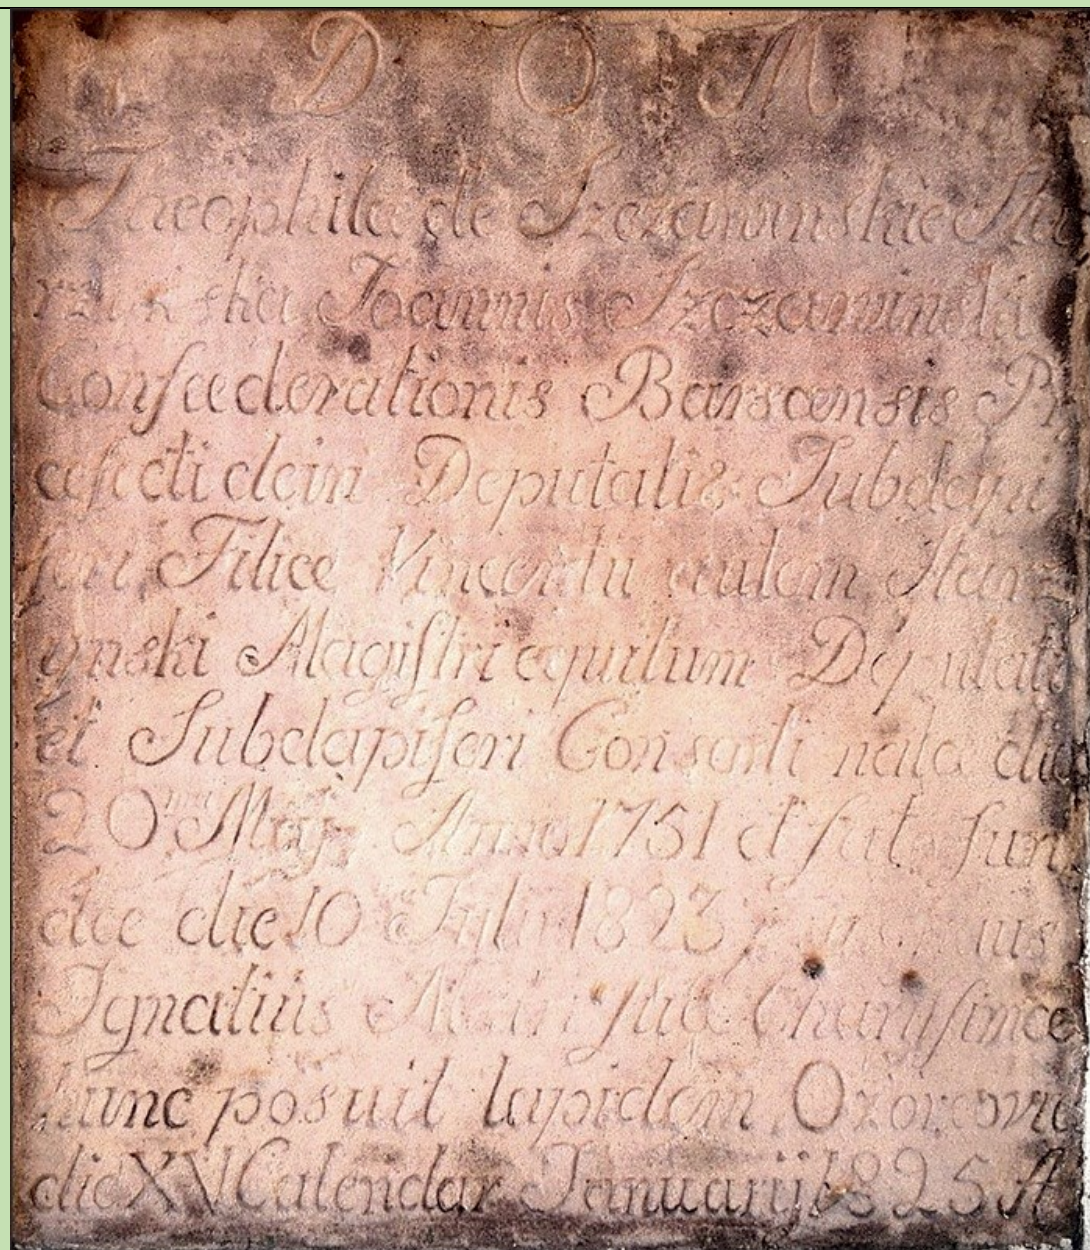 D O M
Theophila de Szczawinskie Sta
rzinska Joannis Szczawinski
Confaederationis Barscensis Pr
aefecti dein Deputatis Subdapi
feri, Filiae Vincentii autem Starz
ynski Magistri equitum Deputati
et Subdapiferi Consorti nata die
20 May Anno 1751 et fato fun
ctae die 10 Julii 1823
Ignatius Matri suae Charissimae
hunc posuit lapidem Ozorcovie
die XV Calendar Januarij 1825 A